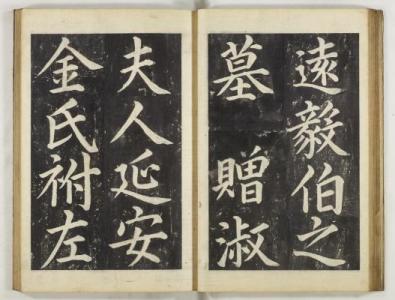 遠毅伯之
墓贈淑
夫人延安
金氏祔左